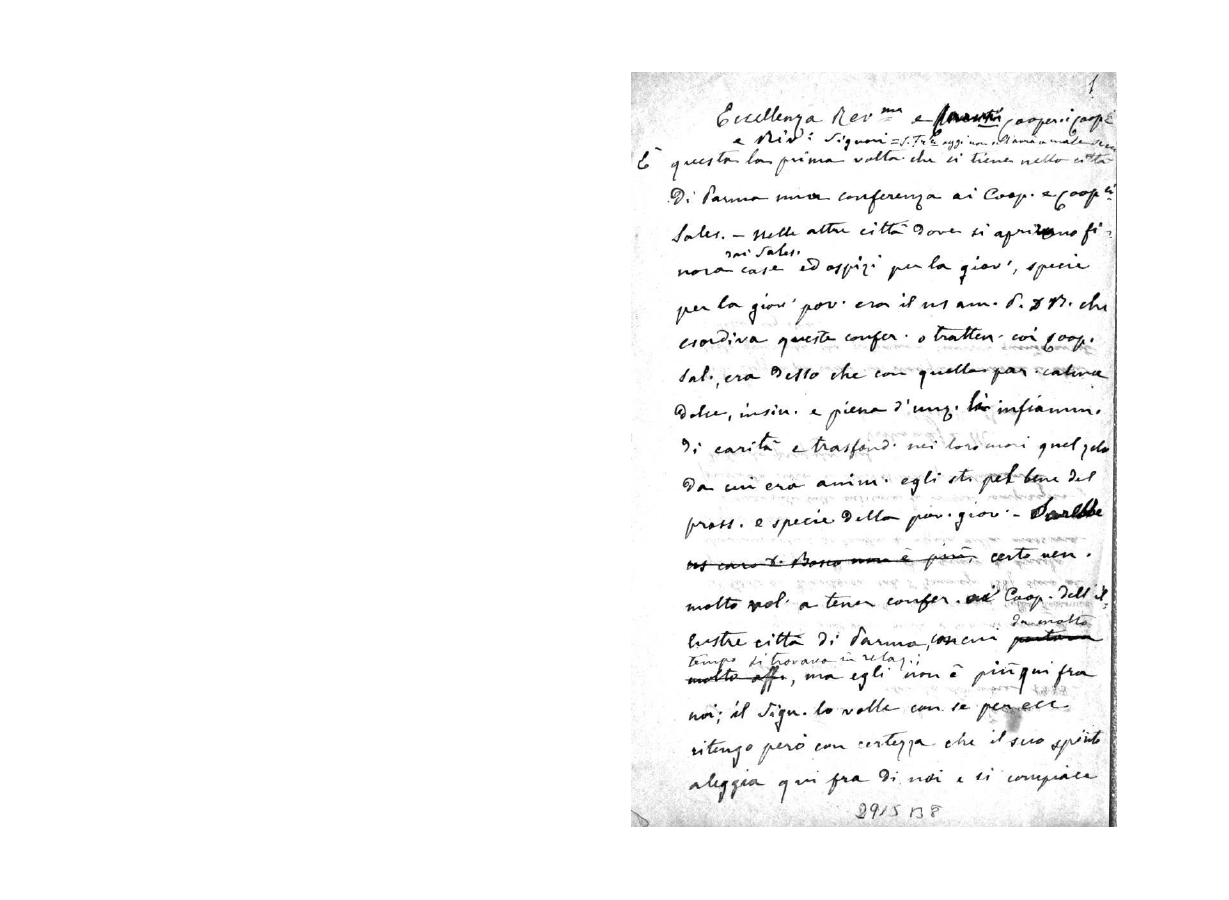 1
Eccellenza Rev.ma e Cooperi Coop.ci
e Riv.i Signori = S. Fr. oggi non
È questa la prima volta che si tiene nella città
di Parma una conferenza ai Coop. e Coop.ci
Sales. — Nelle altre città dove si aprirono fi-
dai Sales.
nora case ed ospizi per la giov., specie
per la giov. pov. era il ns am. P. D. B. che
esordiva queste confer. o tratten. coi Coop.
Sal., era desso che con quella par. calma
dolce, insin. e piena d'unz. li infiamm.
di carità e trasfond. nei loro cuori quel zelo
da cui era anim. egli st. pel bene del
pross. e specie della pov. giov. — Sarebbe
ns caro D. Bosco non è più, certo ven.
molto vol. a tener confer. ai Coop. dell'il-
da molto
lustre città di Parma, con cui portava
tempo si trovava in relaz.;
molto aff., ma egli non è più qui fra
noi; il Sign. lo volle con se per ecc
ritengo però con certezza che il suo spirito
aleggia qui fra di noi e si compiace
2915 B8